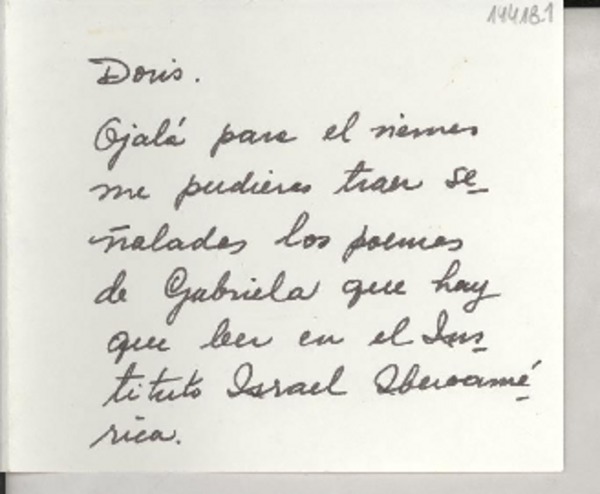 144181
Doris.
Ojalá para el viernes
me pudieras traer se-
ñalados los poemas
de Gabriela que hay
que leer en el Ins-
tituto Israel Iberoamé-
rica.